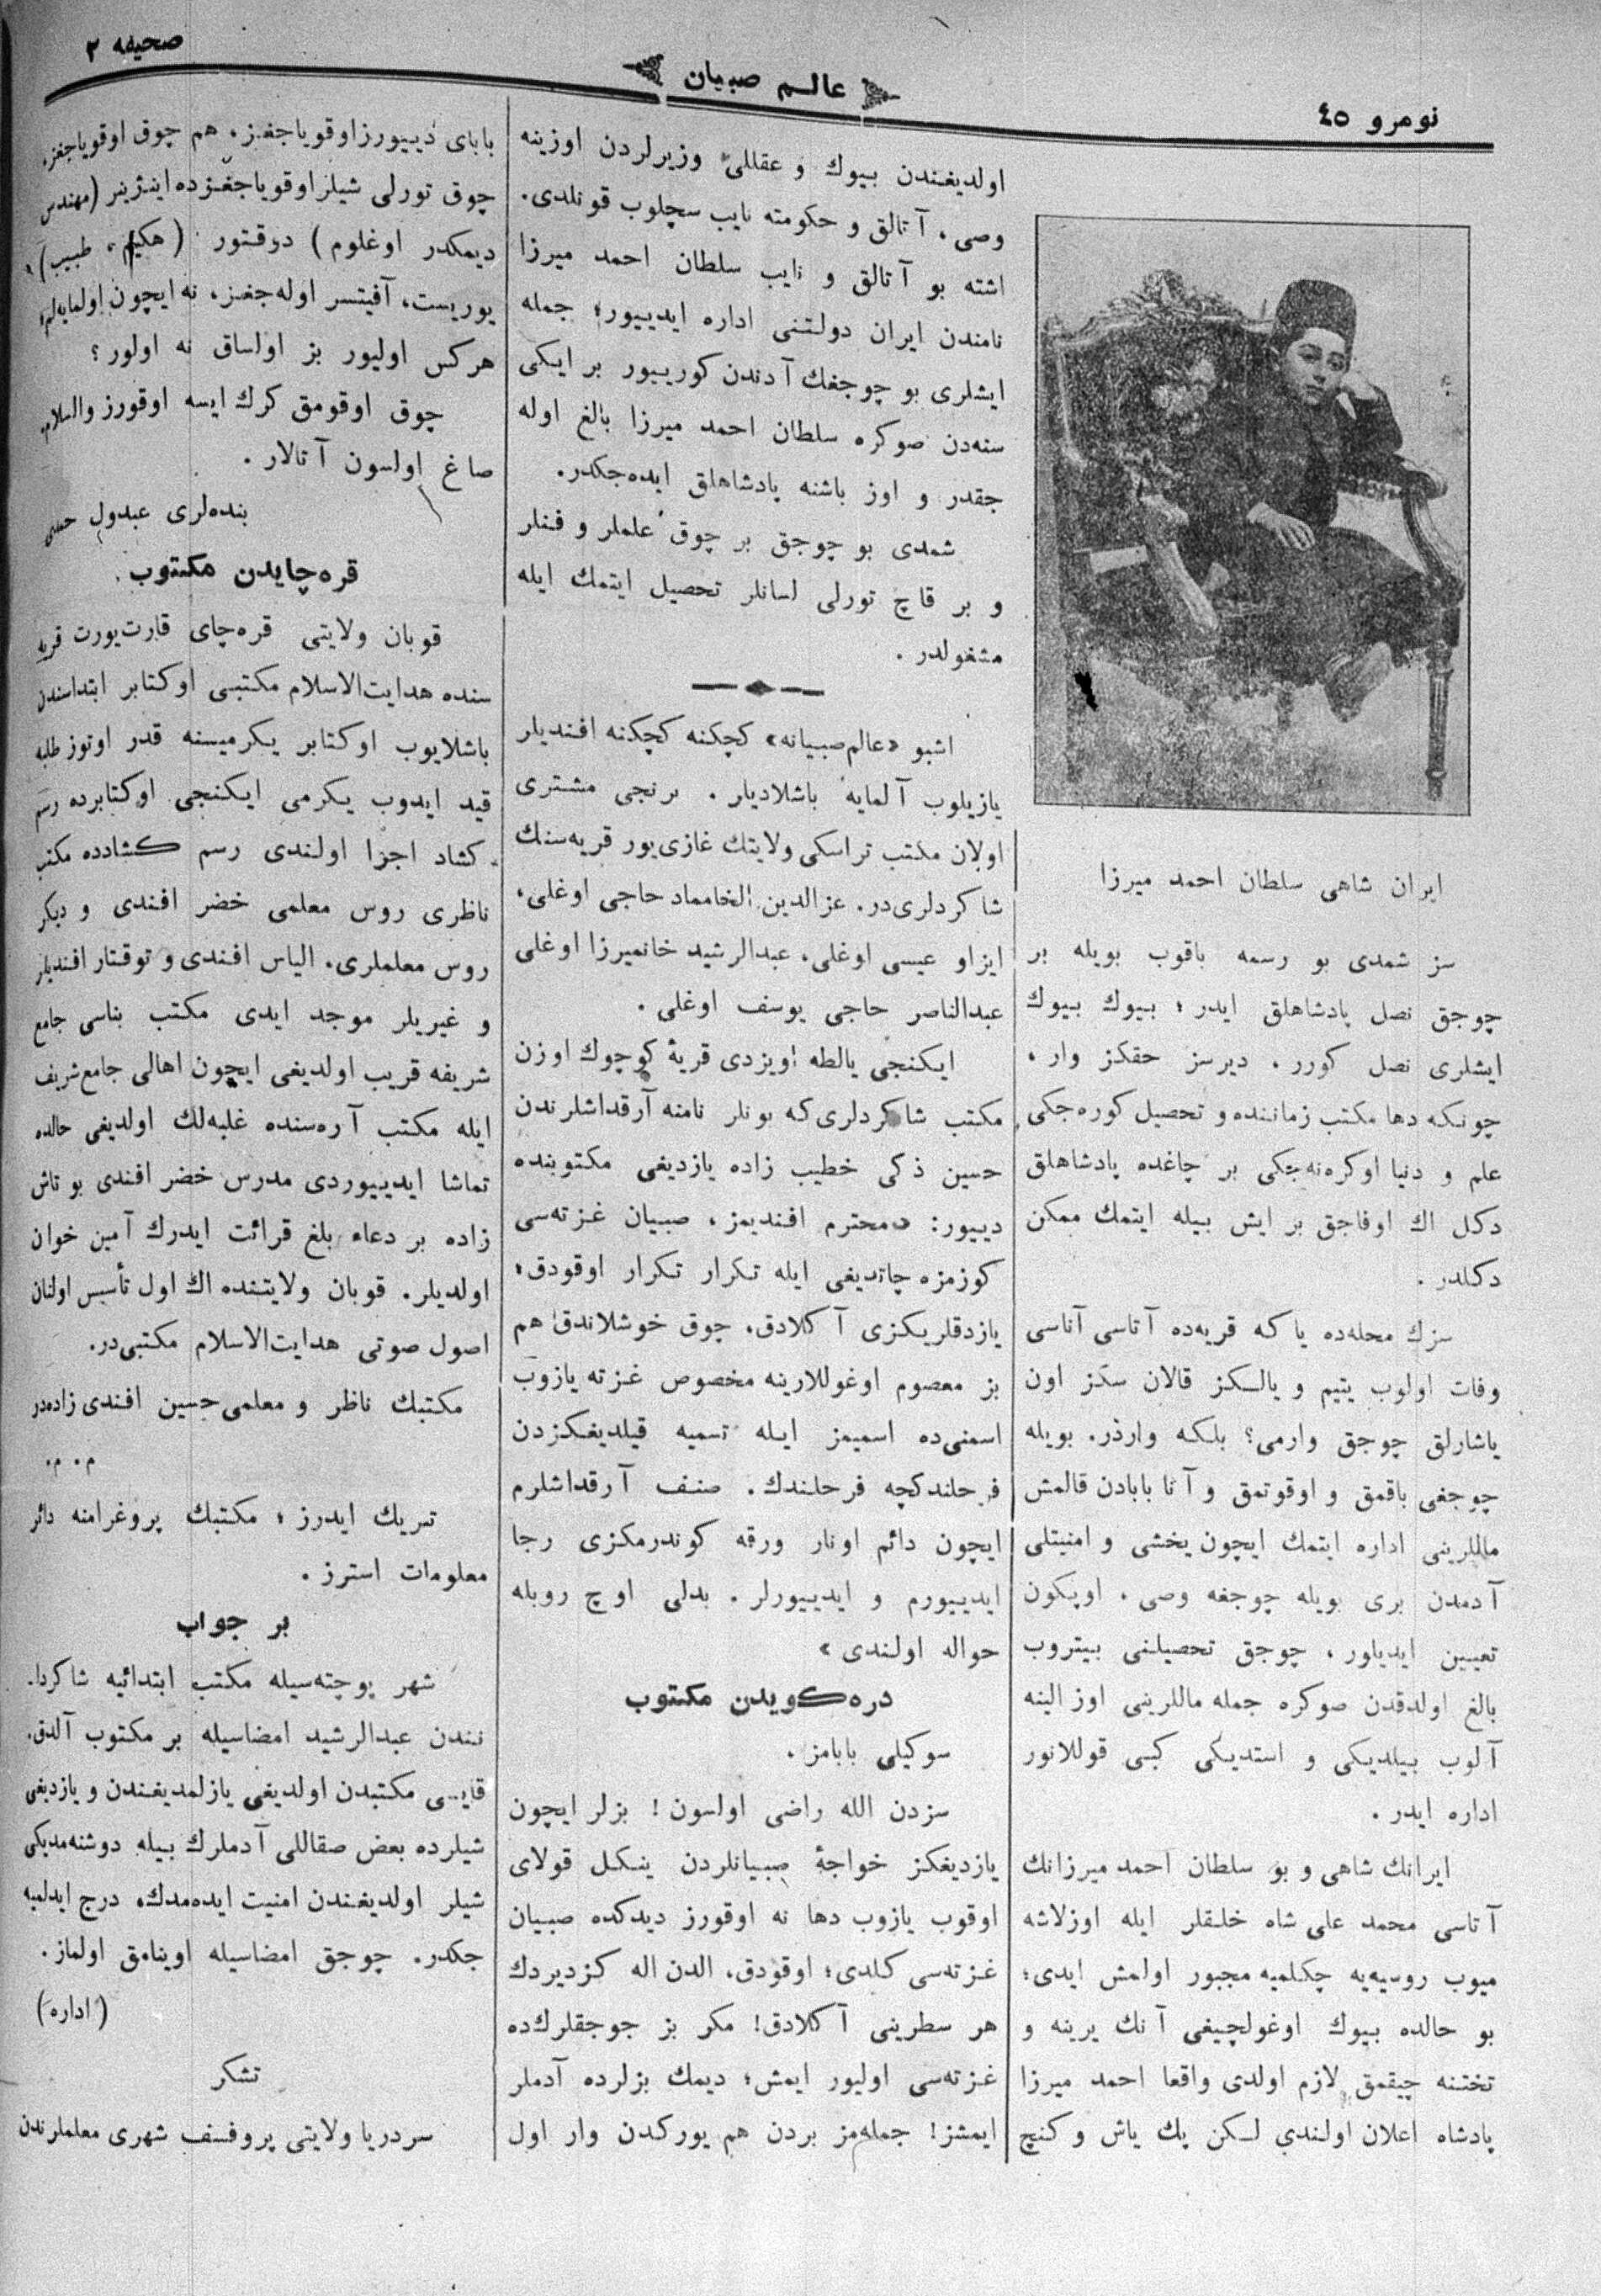 نومرو ٤٥
عالم صبيان
صحيفه ٣
ايران شاهى سلطان احمد ميرزا
سز شمدى بو رسمه باقوب بويله بر
چوجق نصل پادشاهلق ايدر ؛ بيوك بيوك
ايشلرى نصل كورر ، ديرسز حقكز وار ،
چونكه دها مكتب زماننده و تحصيل كوره‌جكى
علم و دنيا اوكره‌نه‌جكى بر چاغده پادشاهلق
دكل اك اوفاجق بر ايش بيله ايتمك ممكن
دكلدر .
سزك محله‌ده ياكه قريه‌ده آتاسى آناسى
وفات اولوب يتيم و يالكز قالان سكز اون
ياشارلق چوجق وارمى؟ بلكه واردر. بويله
چوجغى باقمق و اوقوتمق و آتا بابادن قالمش
ماللرينى اداره ايتمك ايچون يخشى و امنيتلى
آدمدن برى بويله چوجغه وصى ، اوپكون
تعيين ايديلور ، چوجق تحصيلنى بيتروب
بالغ اولدقدن صوكره جمله ماللرينى اوز الينه
آلوب بيلديكى و استديكى كبى قوللانور
اداره ايدر .
ايرانك شاهى و بو سلطان احمد ميرزانك
آتاسى محمد على شاه خلقلر ايله اوزلاشه
ميوب روسيه‌يه چكلميه مجبور اولمش ايدى؛
بو حالده بيوك اوغولچيغى آنك يرينه و
تختنه چيقمق لازم اولدى واقعا احمد ميرزا
پادشاه اعلان اولندى لكن پك ياش و كنج
اولديغندن بيوك و عقللى وزيرلردن اوزينه
وصى ، آتالق و حكومته نايب سچلوب قونلدى.
اشته بو آتالق و نايب سلطان احمد ميرزا
نامندن ايران دولتنى اداره ايدييور؛ جمله
ايشلرى بو چوجغك آدندن كورييور بر ايكى
سنه‌دن صوكره سلطان احمد ميرزا بالغ اوله
جقدر و اوز باشنه پادشاهلق ايده‌جكدر.
شمدى بو چوجق بر چوق علملر و فنلر
و بر قاچ تورلى لسانلر تحصيل ايتمك ايله
مشغولدر .
اشبو «عالم صبيانه» كچكنه كچكنه افنديلر
يازيلوب آلمايه باشلاديلر . برنجى مشترى
اولان مكتب تراسكى ولايتك غازى‌يور قريه‌سنك
شاكردلرى‌در. عزالدين الخامماد حاجى اوغلى،
ايزاو عيسى اوغلى، عبدالرشيد خانميرزا اوغلى
عبدالناصر حاجى يوسف اوغلى .
ايكنجى يالطه اويزدى قريۀ كوچوك اوزن
مكتب شاكردلرى‌كه بونلر نامنه آرقداشلرندن
حسين ذكى خطيب زاده يازديغى مكتوبنده
دييور: «محترم افنديمز، صبيان غزته‌سى
كوزمزه چاتديغى ايله تكرار تكرار اوقودق؛
يازدقلريكزى آكلادق، چوق خوشلاندق هم
بز معصوم اوغوللارينه مخصوص غزته يازوب
اسمنى‌ده اسميمز ايله تسميه قيلديغكزدن
فرحلندكچه فرحلندك. صنف آرقداشلرم
ايچون دائم اونار ورقه كوندرمكزى رجا
ايدييورم و ايدييورلر . بدلى اوچ روبله
حواله اولندى »
دره‌كويدن مكتوب
سوكيلى بابامز ،
سزدن الله راضى اولسون ! بزلر ايچون
يازديغكز خواجۀ صبيانلردن ينكل قولاى
اوقوب يازوب دها نه اوقورز ديدكده صبيان
غزته‌سى كلدى؛ اوقودق، الدن اله كزديردك
هر سطرينى آكلادق! مكر بز جوجقلرك‌ده
غزته‌سى اوليور ايمش؛ ديمك بزلرده آدملر
ايمشز! جمله‌مز بردن هم يوركدن وار اول
باباى دييورز اوقوياجغز، هم چوق اوقوياجغز،
چوق تورلى شيلر اوقوياجغزده اينژينر (مهندس
ديمكدر اوغلوم) دوقتور (حكيم، طبيب)،
يوريست، آفيتسر اوله‌جغز، نه ايچون اولمايه‌لم؛
هركس اوليور بز اولساق نه اولور ؟
چوق اوقومق كرك ايسه اوقورز والسلام.
صاغ اولسون آتالار .
بنده‌لرى عبدول
قره‌چايدن مكتوب
قوبان ولايتى قره‌چاى قارت‌يورت قريه
سنده هدايت‌الاسلام مكتبى اوكتابر ابتداسندن
باشلايوب اوكتابر يكرميسنه قدر اوتوز طلبه
قيد ايدوب يكرمى ايكنجى اوكتابرده رسم
كشاد اجرا اولندى رسم كشادده مكتب
ناظرى روس معلمى خضر افندى و ديكر
روس معلملرى، الياس افندى و توقتار افنديلر
و غيريلر موجد ايدى مكتب بناسى جامع
شريفه قريب اولديغى ايچون اهالى جامع شريف
ايله مكتب آره‌سنده غلبه‌لك اولديغى حالده
تماشا ايدييوردى مدرس خضر افندى بو تاش
زاده بر دعاء بلغ قرائت ايدرك آمين خوان
اولديلر. قوبان ولايتنده اك اول تأسيس اولنان
اصول صوتى هدايت‌الاسلام مكتبى‌در.
مكتبك ناظر و معلمى حسين افندى زاده‌در
م. م.
تبريك ايدرز ؛ مكتبك پروغرامنه دائر
معلومات استرز .
بر جواب
شهر پوچته‌سيله مكتب ابتدائيه شاكردا.
نندن عبدالرشيد امضاسيله بر مكتوب آلدق.
قايسى مكتبدن اولديغى يازلمديغندن و يازديغى
شيلرده بعض صقاللى آدملرك بيله دوشنه‌مديكى
شيلر اولديغندن امنيت ايده‌مدك، درج ايدلميه
جكدر. چوجق امضاسيله اوينامق اولماز.
(اداره)
تشكر
سردريا ولايتى پروفسف شهرى معلملرندن